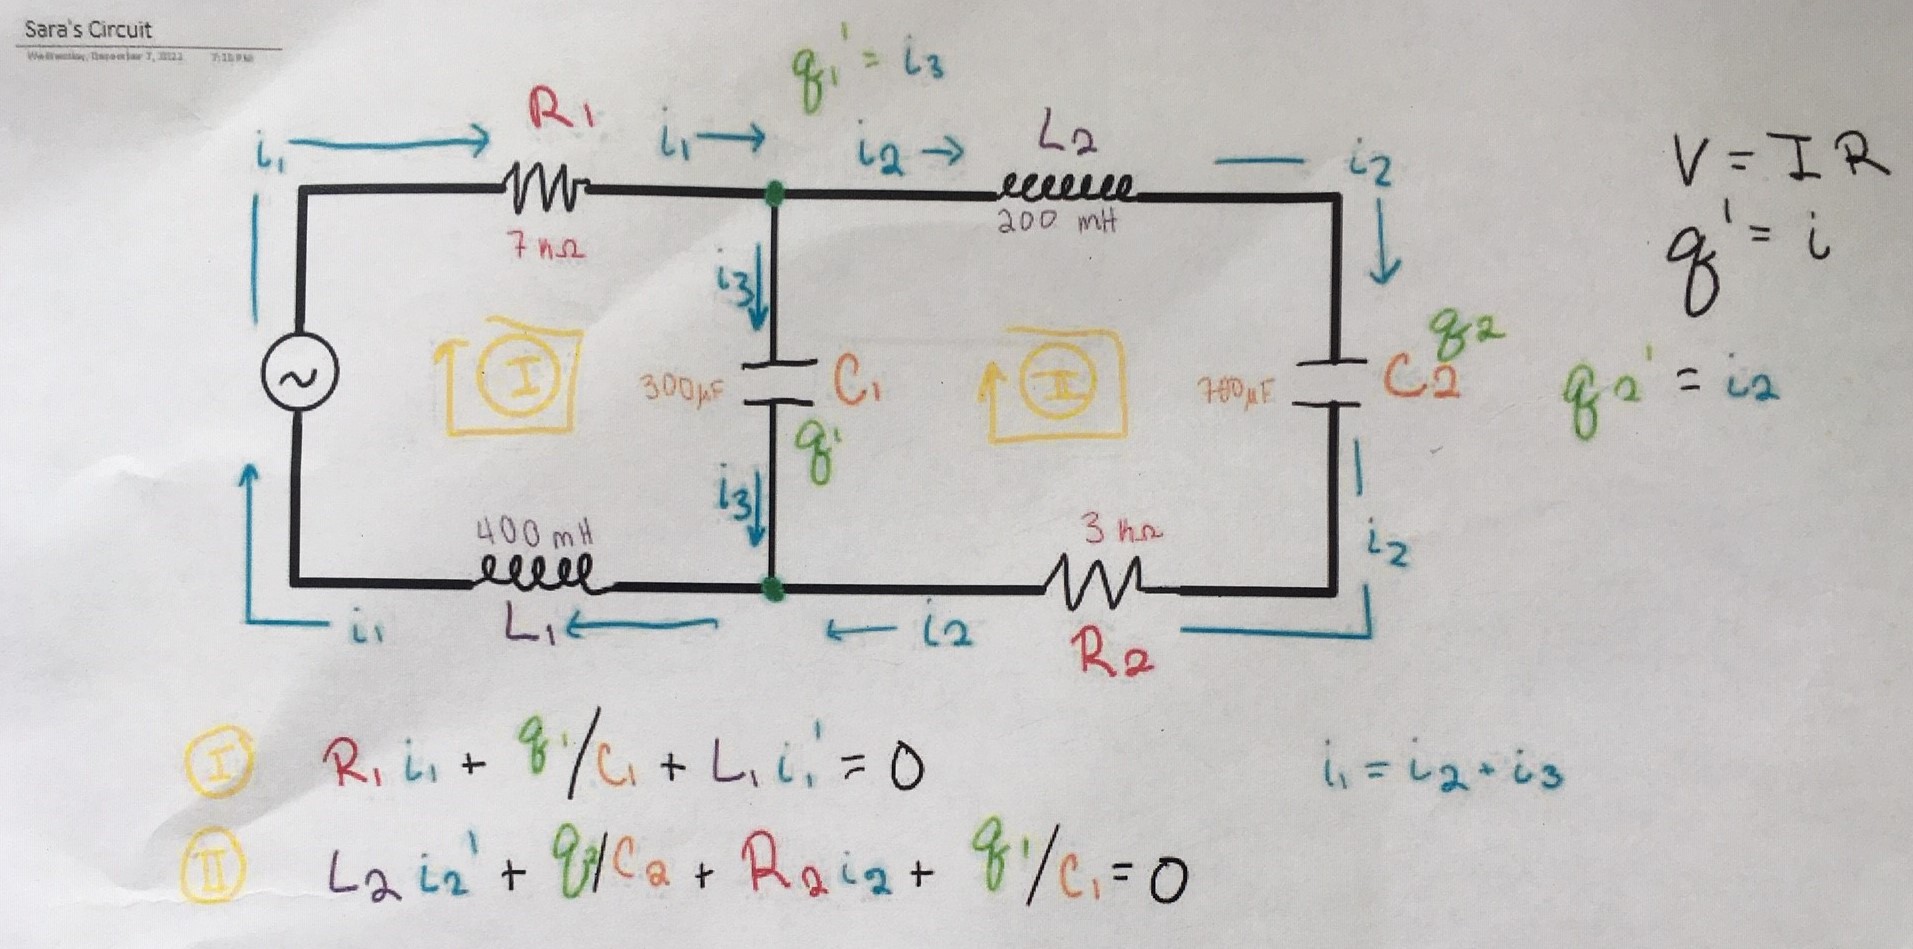 Sara's Circuit
Wednesday, December 7, 2022 7:10 PM
q₁' = i₃
R₁
i₁ i₁ i₂ L₂ i₂
V = I R
7 kΩ
200 mH
q' = i
i₃
I
300μF C₁
II
700μF C₂ q₂
q₂' = i₂
q₁
i₃
400 mH
3 kΩ
i₂
i₁ L₁ i₂ R₂
I R₁ i₁ + q₁/C₁ + L₁ i₁' = 0
i₁ = i₂ + i₃
II L₂ i₂' + q₂/C₂ + R₂ i₂ + q₁/C₁ = 0